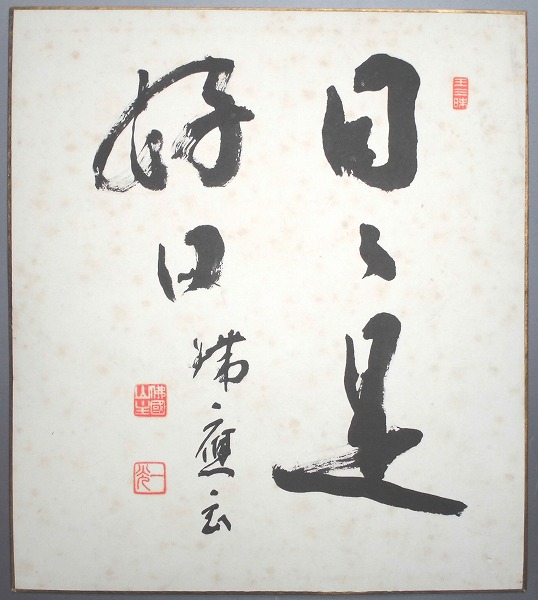 日々是
好日
瑞應
佛國山主